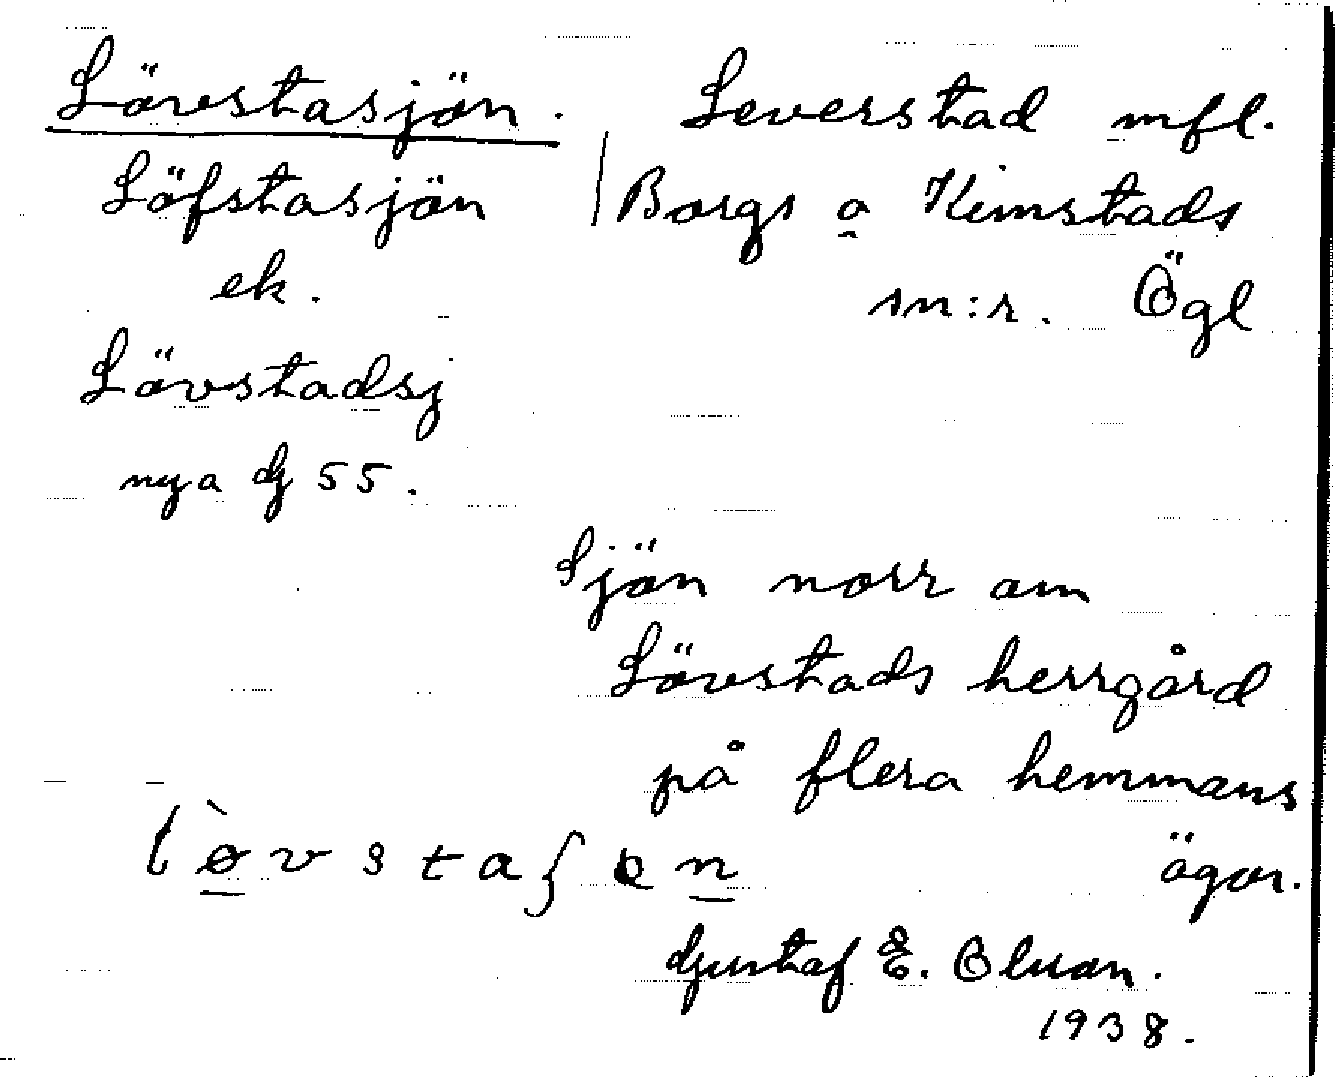 Lövstasjön.
Löfstasjön
ek.
Lövstadsj
nya G 55.
Leverstad mfl.
Borgs o Kimstads
sn:r. Ögl
Sjön norr om
Lövstads herrgård
på flera hemmans
ägor.
Gustaf E. Olsson.
1938.